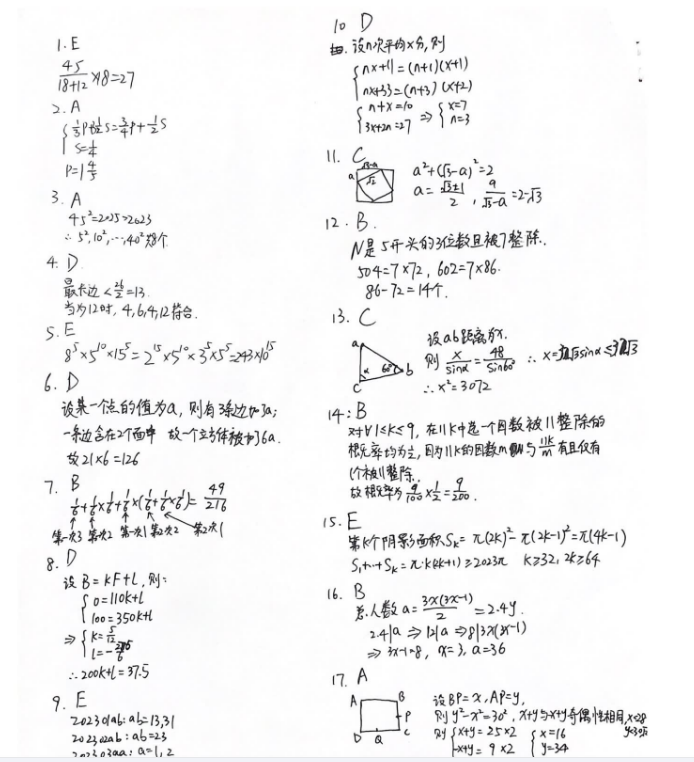 1. E
45/(18+12) ×18=27
2. A
{ 1/3P+1/2S=3/4P+1/2S
S=1/4
P=1 4/5
3. A
45²=2025>2023
∴ 5²,10²,…,40²
4. D.
最长边 < 26/2 =13.
当为12时, 4,6,4,12 符合.
5. E
8⁵×5¹⁰×15⁵=2¹⁵×5¹⁰×3⁵×5⁵=243×10¹⁵
6. D
设某一个点的值为a, 则有3条边加了a;
一条边含在2个面中 故一个立方体被加了6a.
故 21×6=126
7. B
1/6+1/6×1/6+1/6×(1/6+1/6×1/6)= 49/216
第一次3 第次2 第一次1 第二次2 第2次1
8. D
设 B=kF+L, 则:
{ 0=110k+l
100=350k+l
⇒ { k=5/12
l=-275/6
∴200k+l=37.5
9. E
202301ab: ab=13,31
202302ab: ab=23
202303aa: a=1,2
10 D
设n次平均x分, 则
{ nx+11=(n+1)(x+1)
nx+33=(n+3)(x+2)
{ n+x=10
3x+2n=27 ⇒ { x=7
n=3
11. C
√3-a
a √2
a²+(√3-a)²=2
a= (√3±1)/2 , a/(√3-a) =2-√3
12. B.
N是5开头的3位数且被7整除.
504=7×72, 602=7×86.
86-72=14个.
13. C
设ab距离为x.
a b c α 60°
则 x/sinα = 48/sin60° ∴ x=32√3sinα≤32√3
∴x²=3072
14: B
对∀1≤k≤9, 在11k中选一个因数被11整除的
概率均为1/2, 因为11k的因数m 与 11k/m 有且仅有
1个被11整除.
故概率为 9/100 × 1/2 = 9/200.
15. E
第k个阴影面积Sₖ= π(2k)²-π(2k-1)²=π(4k-1)
S₁+…+Sₖ=π·k(2k+1)≥2023π k≥32, 2k≥64
16. B
总人数 a= 3x(3x-1)/2 =2.4y.
2.4|a ⇒12|a ⇒8|3x(3x-1)
⇒ 3x-1=8, x=3, a=36
17. A
A B P C D Q
设BP=x, AP=y,
则 y²-x²=30², x+y与-x+y奇偶性相同,
则 { x+y=25×2
-x+y=9×2 { x=16
y=34